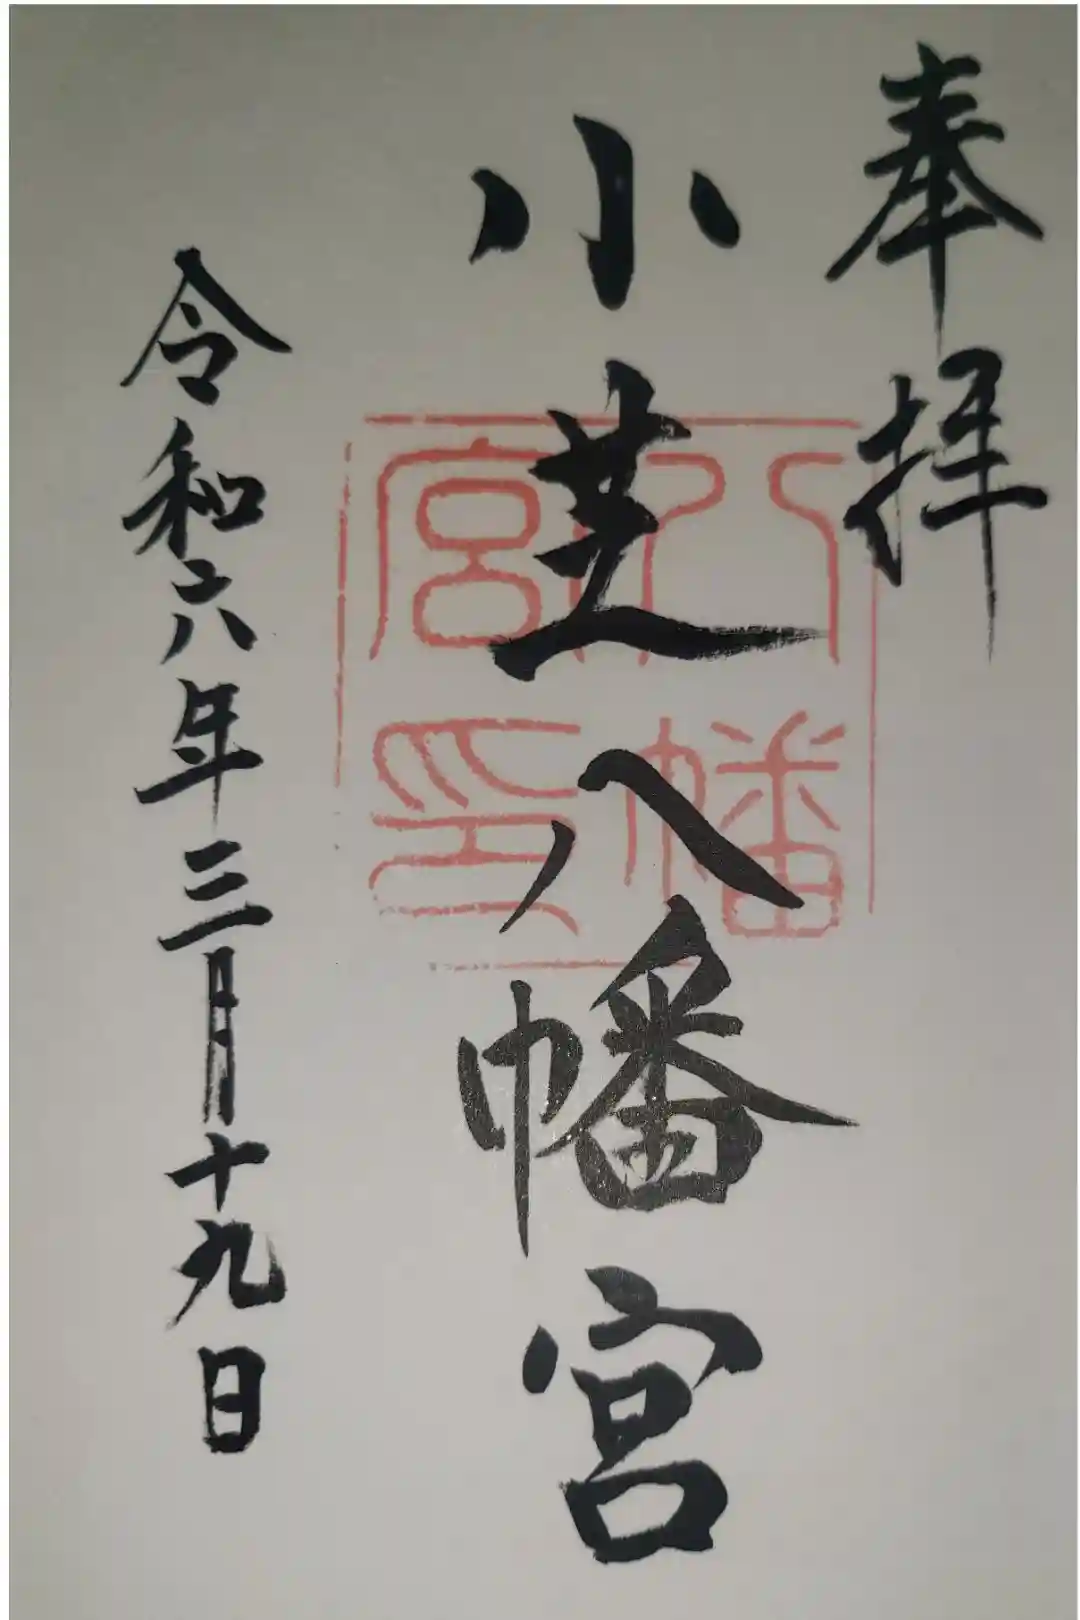 奉拝
小芝八幡宮
八幡宮印
令和六年三月十九日